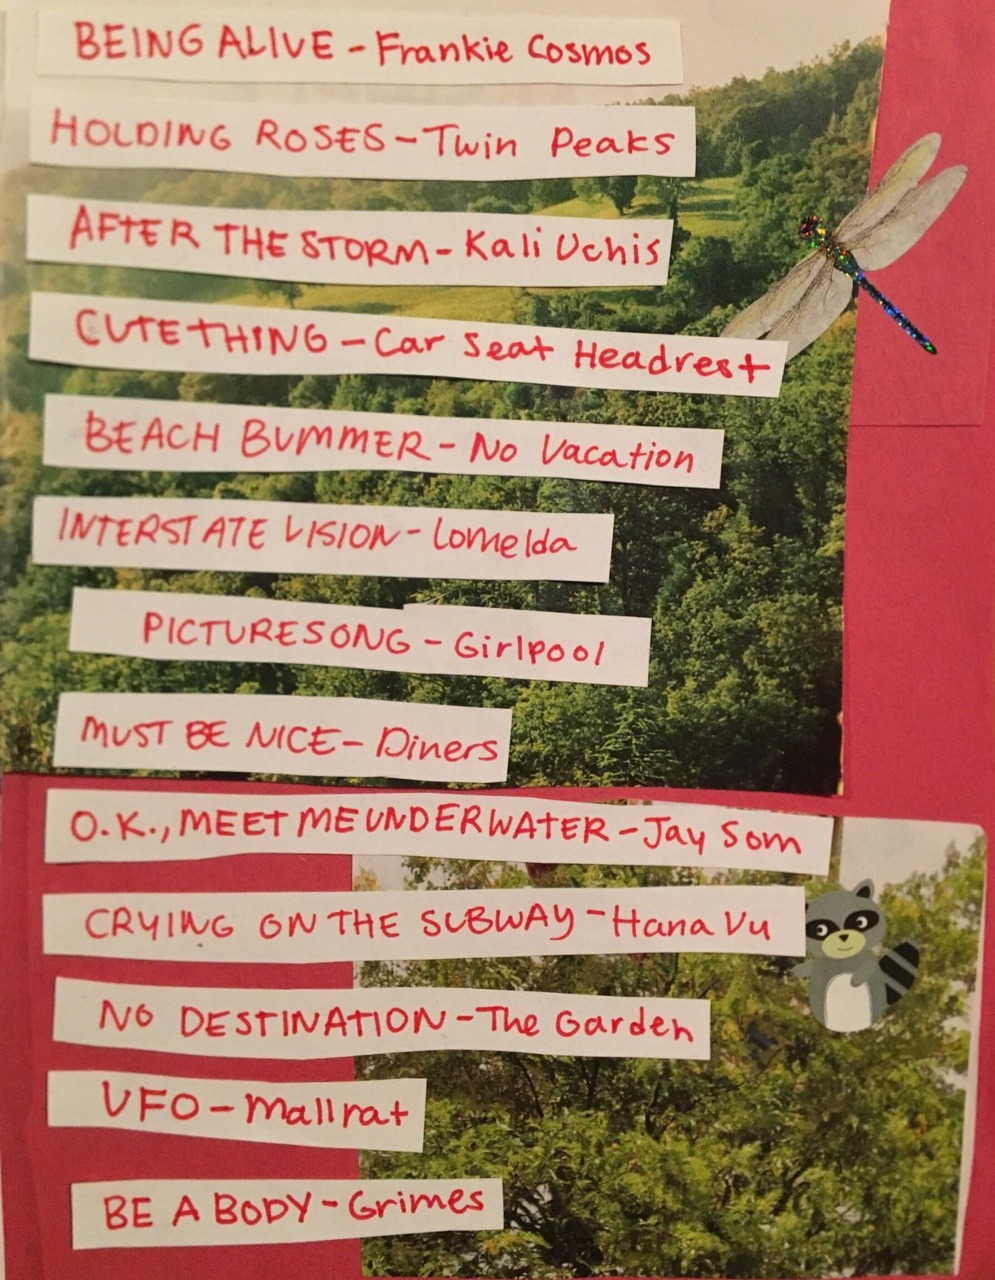 BEING ALIVE - Frankie Cosmos
HOLDING ROSES - Twin Peaks
AFTER THE STORM - Kali Uchis
CUTE THING - Car Seat Headrest
BEACH BUMMER - No Vacation
INTERSTATE VISION - Lomelda
PICTURESONG - Girlpool
MUST BE NICE - Diners
O.K., MEET ME UNDERWATER - Jay Som
CRYING ON THE SUBWAY - Hana Vu
NO DESTINATION - The Garden
UFO - Mallrat
BE A BODY - Grimes